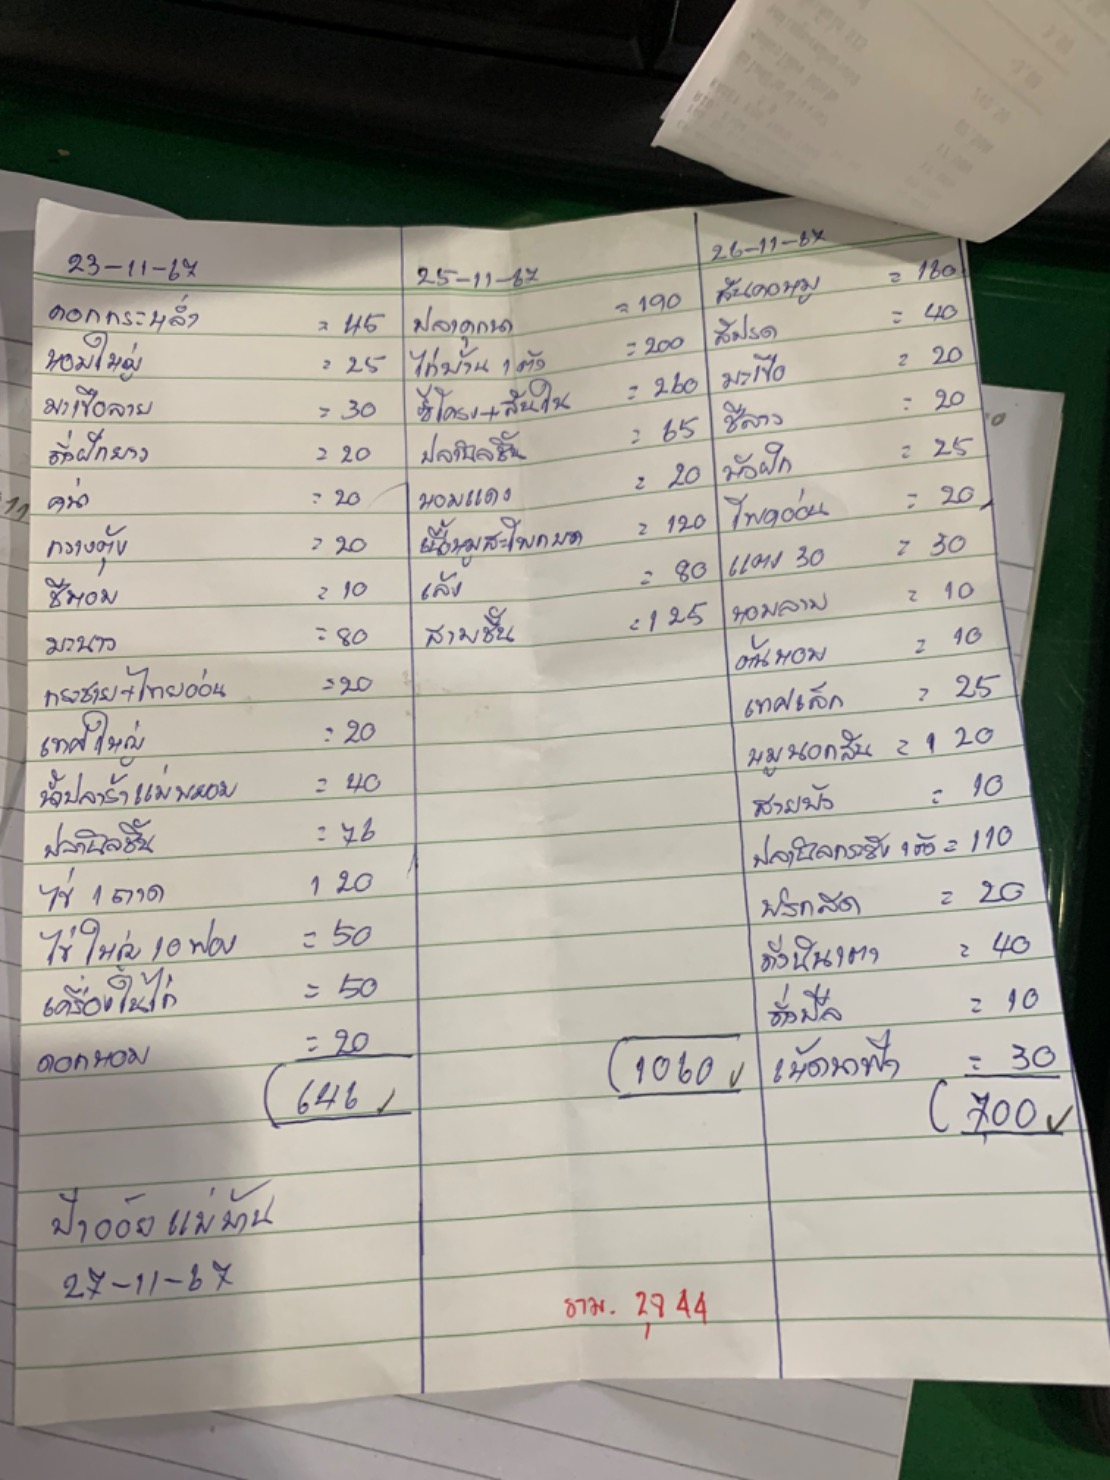 23-11-67
ดอกกระหล่ำ = 45
หอมใหญ่ = 25
มะเขือลาย = 30
ถั่วฝักยาว = 20
คน้า = 20
กวางตุ้ง = 20
ชีหอม = 10
มะนาว = 80
กระชาย+ไทยอ่อน = 20
เทศใหญ่ = 20
น้ำปลาร้าแม่พหอม = 40
ปลานิลชิ้น = 76
ไข่ 1 ถาด 120
ไข่ใหญ่ 10 ฟอง = 50
เครื่องในไก่ = 50
ดอกหอม = 20
646
ป้าอ้อย แม่บ้าน
27-11-67
25-11-67
ปลาดุกนา = 190
ไก่บ้าน 1 ตัว = 200
ซี่โครง+สันใน = 260
ปลานิลชิ้น = 65
หอมแดง = 20
เนื้อหมูสะโพกบด = 120
เล้ง = 80
สามชั้น = 125
1060
26-11-67
สันคอหมู = 160
สัปรด = 40
มะเขือ = 20
ชีลาว = 20
บัวฝัก = 25
โหระอ่อน = 20
แตง 30 = 30
หอมลาบ = 10
ต้นหอม = 10
เทศเล็ก = 25
หมูนอกสัน = 120
สายบัว = 10
ปลานิลกระชัง 1 ตัว = 110
พริกสด = 20
= 40
= 10
เห็ดนางฟ้า = 30
700
รวม. 2,744